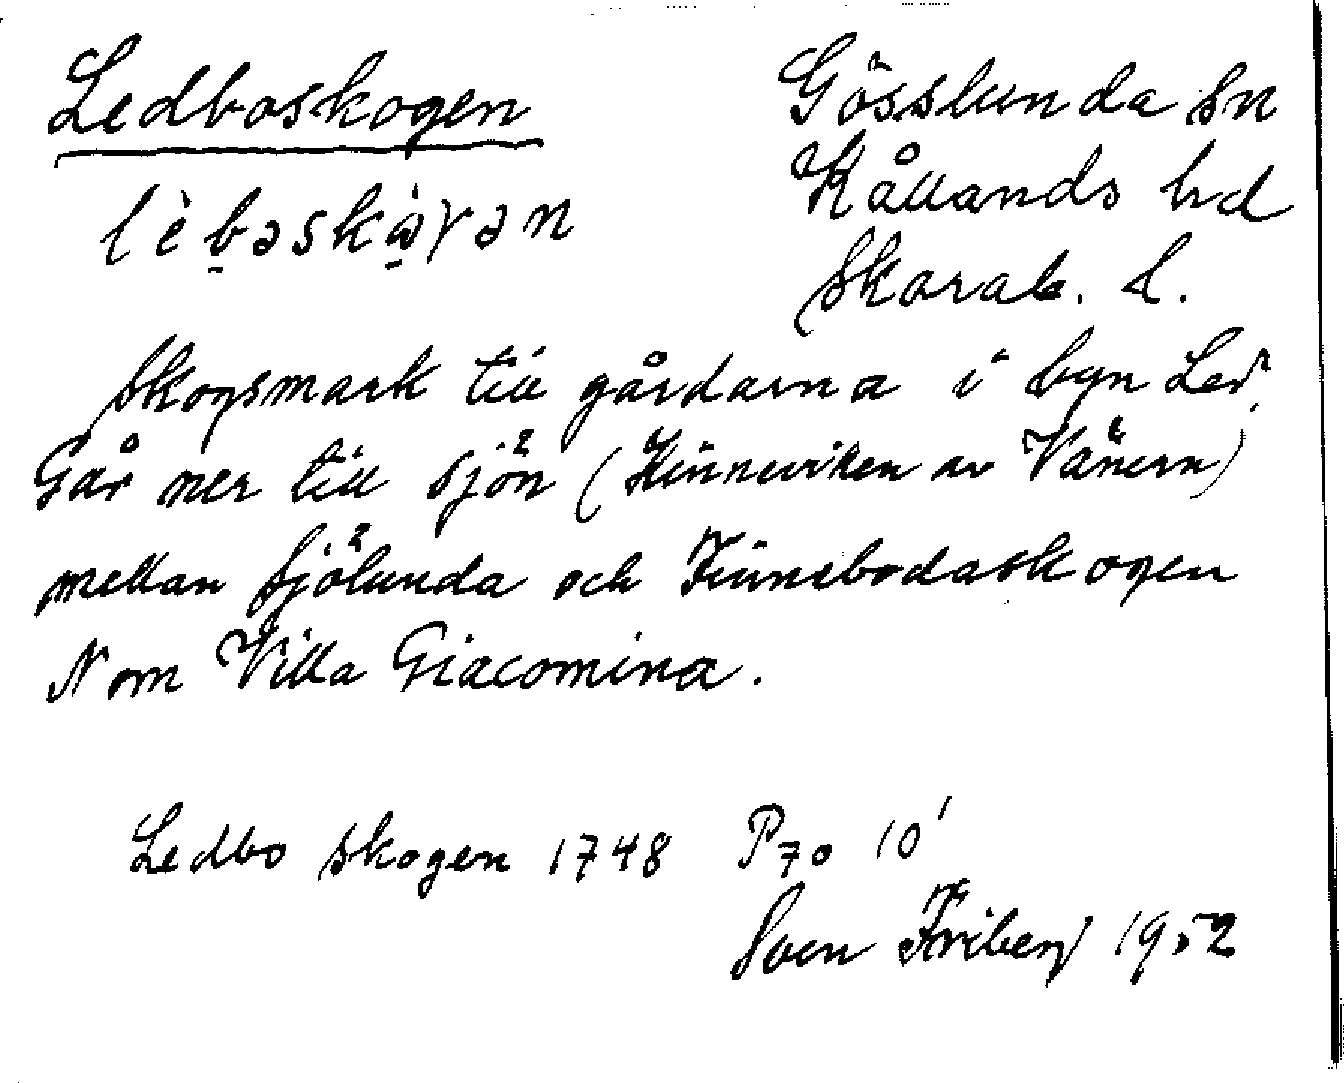 Ledboskogen
lèbǝskà̱ɣǝn
Gösslunda sn
Kållands hd
Skarab. l.
Skogsmark till gårdarna i byn Led.
Går ner till sjön (Kinneviken av Vänern)
mellan Sjölunda och Finnebodaskogen
N om Villa Giacomina.
Ledbo skogen 1748 P70 10'
Sven Friberg 1952